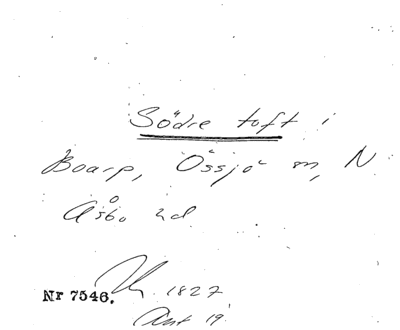 Södre toft i
Boarp, Össjö sn, N
Åsbo hd
Nr 7546. 1827
Ant 19